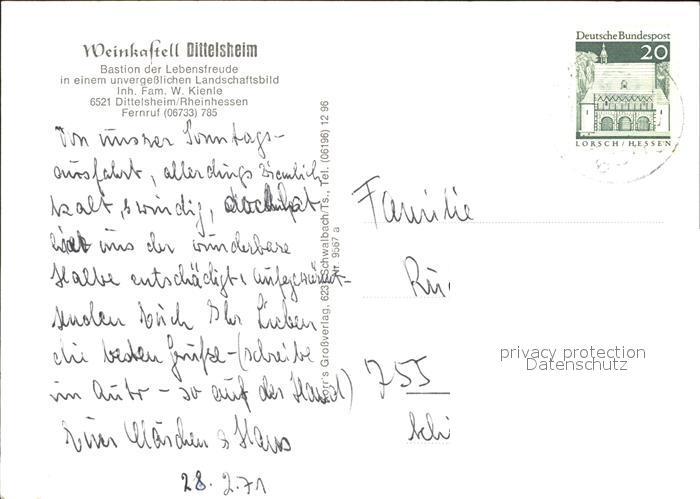 Weinkastell Dittelsheim
Bastion der Lebensfreude
in einem unvergeßlichen Landschaftsbild
Inh. Fam. W. Kienle
6521 Dittelsheim/Rheinhessen
Fernruf (06733) 785
Deutsche Bundespost
20
LORSCH/HESSEN
Von unsrer Sonntags-
ausfahrt, allerdings ziemlich
kalt, & windig,
uns der wunderbare
entschädigt,
senden Euch Ihr Lieben
die besten Grüße - (schreibe
im Auto - so auf der Hand)
Eure Klärchen & Hans
28. 2. 71
Schwalbach/Ts., Tel. (06196) 12 96
Großverlag, 623
Nr. 9567 a
Familie
755
privacy protection
Datenschutz